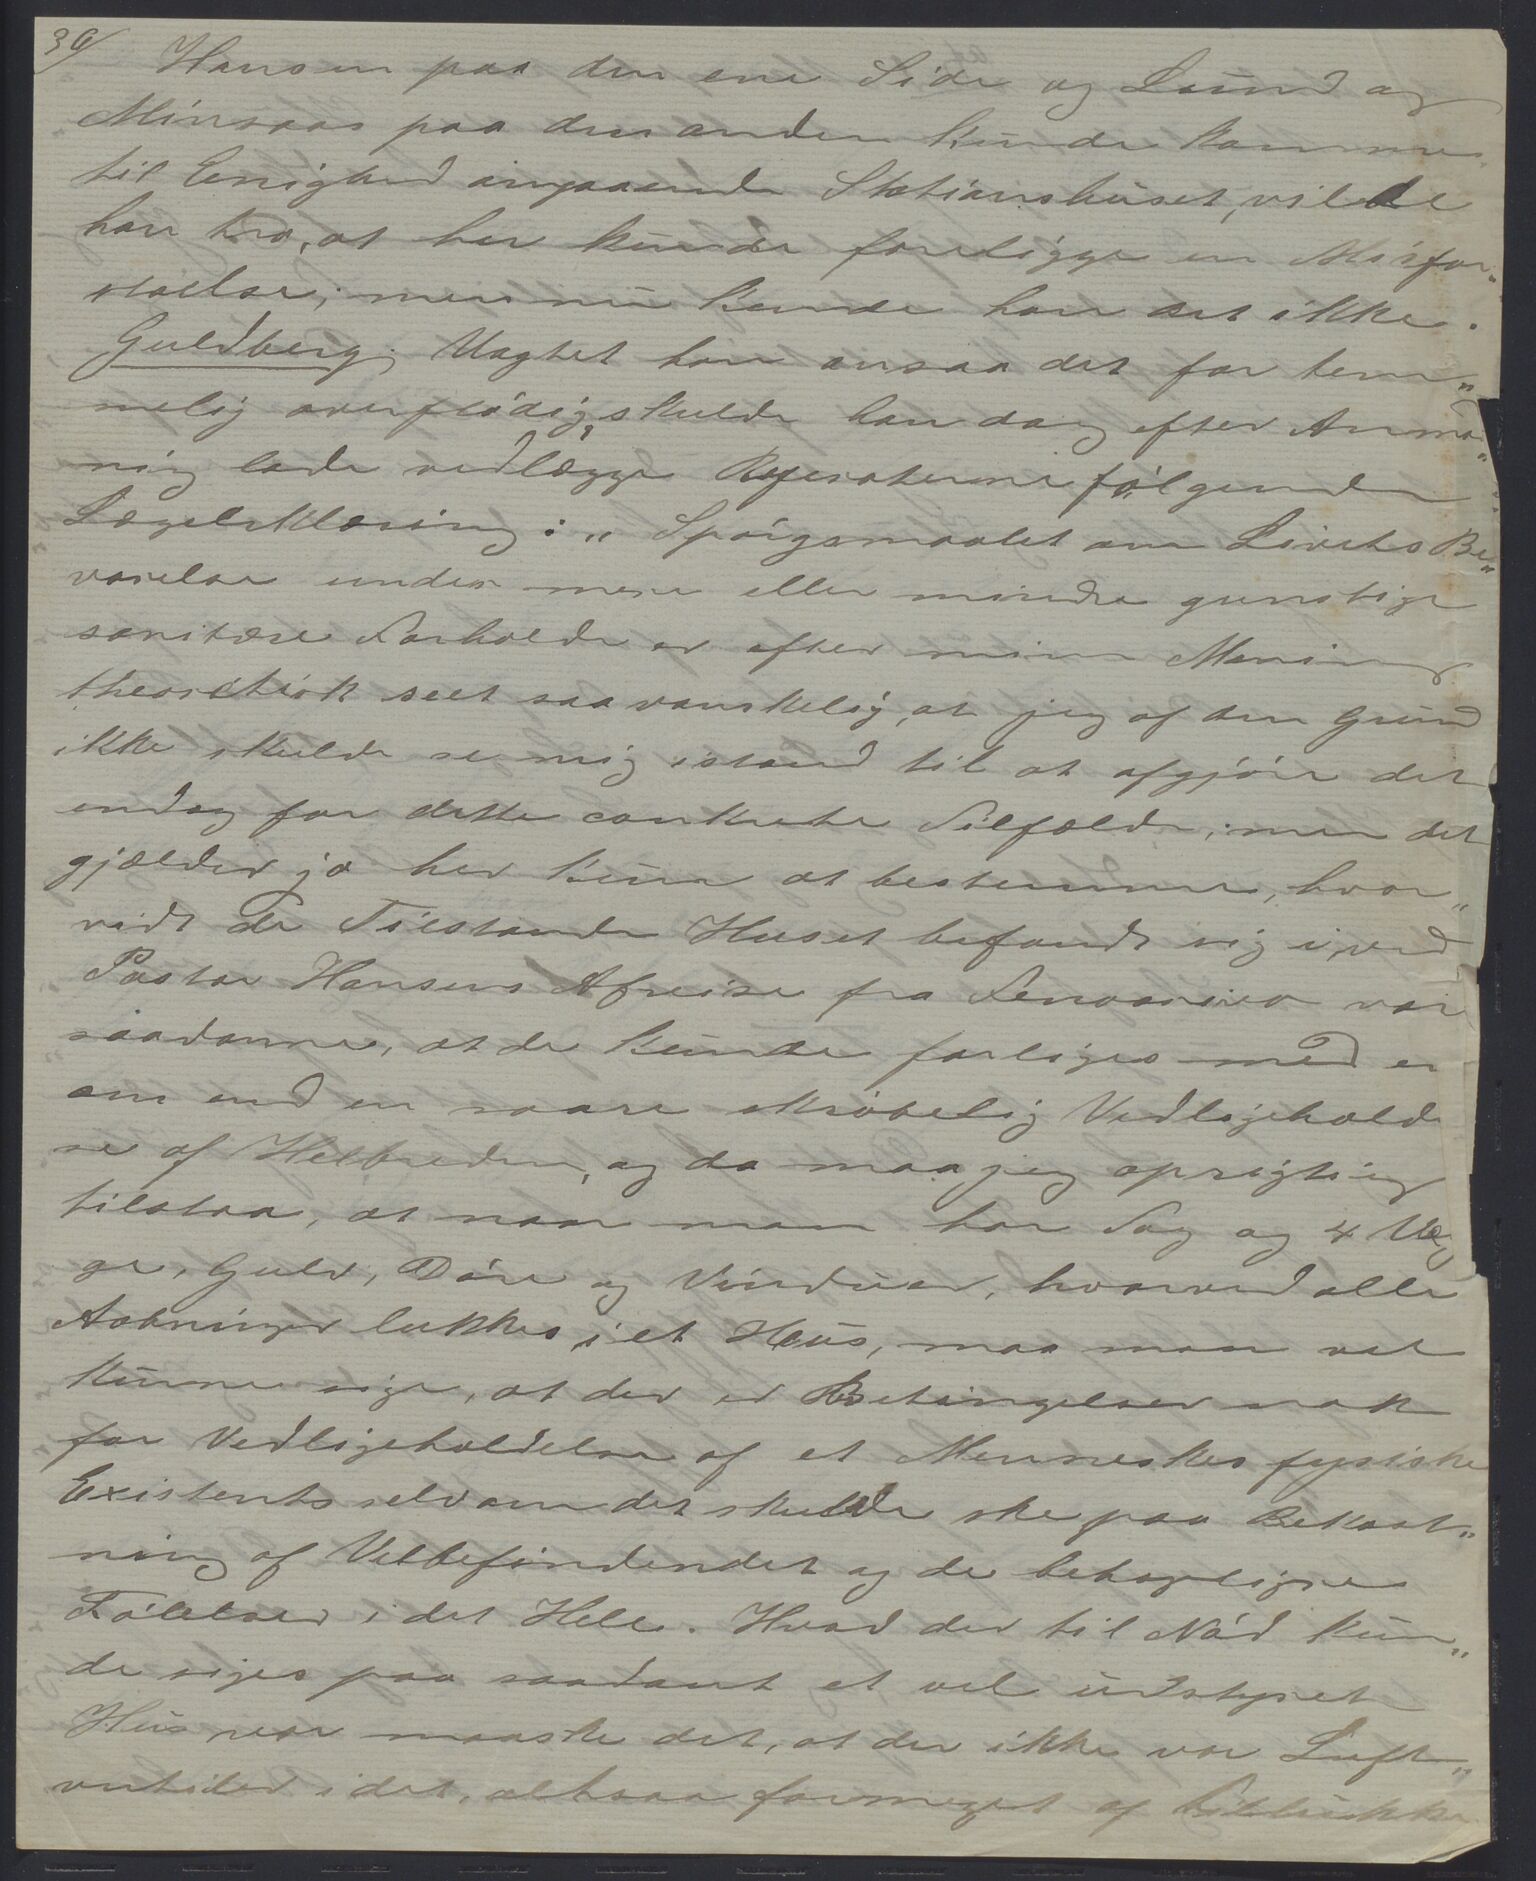 36/
Hansen paa den ene Side og Lund og
Minsaas paa den anden kunde komme
til Enighed angaaende Stationshuset, vilde
han tro, at her kunde foreligge en Misfor„
staaelse; men nu kunde han det ikke.
Guldberg: Uagtet han ansaa det for tem„
melig overflødig, skulde han dog efter Anmo„
ning lade vedlægge Referaterne følgende
Lægeerklæring: „Spørgsmaalet om Livets Be„
varelse under mere eller mindre gunstige
sanitære Forholde er efter min Mening
theoretisk seet saa vanskelig, at jeg af den Grund
ikke skulde se mig istand til at afgjøre det
endog for dette conkrete Tilfælde; men det
gjælder jo her kun at bestemme, hvor„
vidt de Tilstande Huset befandt sig i, ved
Pastor Hansens Afreise fra Fenoarivo var
saadanne, at de kunde forliges med en
om end en saare skrøbelig Vedligehold
se af Helbreden, og da maa jeg oprigtig
tilstaa, at naar man har Tag og 4 Væg
ge, Gulv, Døre og Vinduer, hvorved alle
Aabninger lukkes i et Hus, maa man vel
kunne sige, at der er Betingelser nok
for Vedligeholdelse af et Menneskes fysiske
Existents selv om det skulde ske paa Bekost„
ning af Velbefindendet og de behagligere
Følelser i det Hele. Hvad der til Nød kun„
de siges paa saadant et vel udstyret
Hus var maaske det, at der ikke var Luft„
ventiler i det, altsaa formeget af